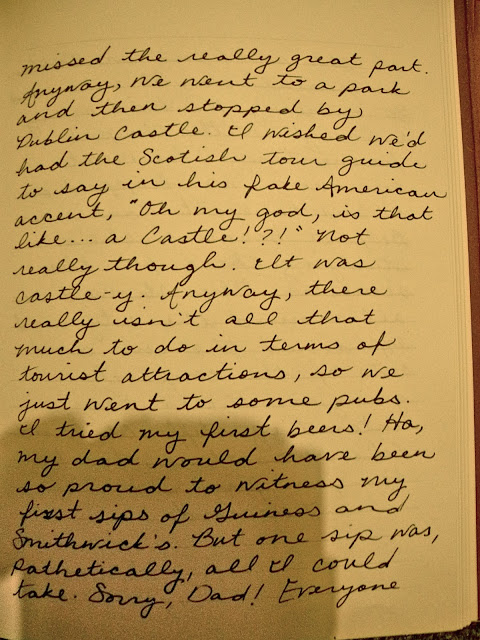 missed the really great part.
Anyway, we went to a park
and then stopped by
Dublin Castle. I wished we'd
had the Scotish tour guide
to say in his fake American
accent, "Oh my god, is that
like... a Castle!?!" Not
really though. It was
castle-y. Anyway, there
really isn't all that
much to do in terms of
tourist attractions, so we
just went to some pubs.
I tried my first beers! Ha,
my dad would have been
so proud to witness my
first sips of Guiness and
Smithwick's. But one sip was,
pathetically, all I could
take. Sorry, Dad! Everyone